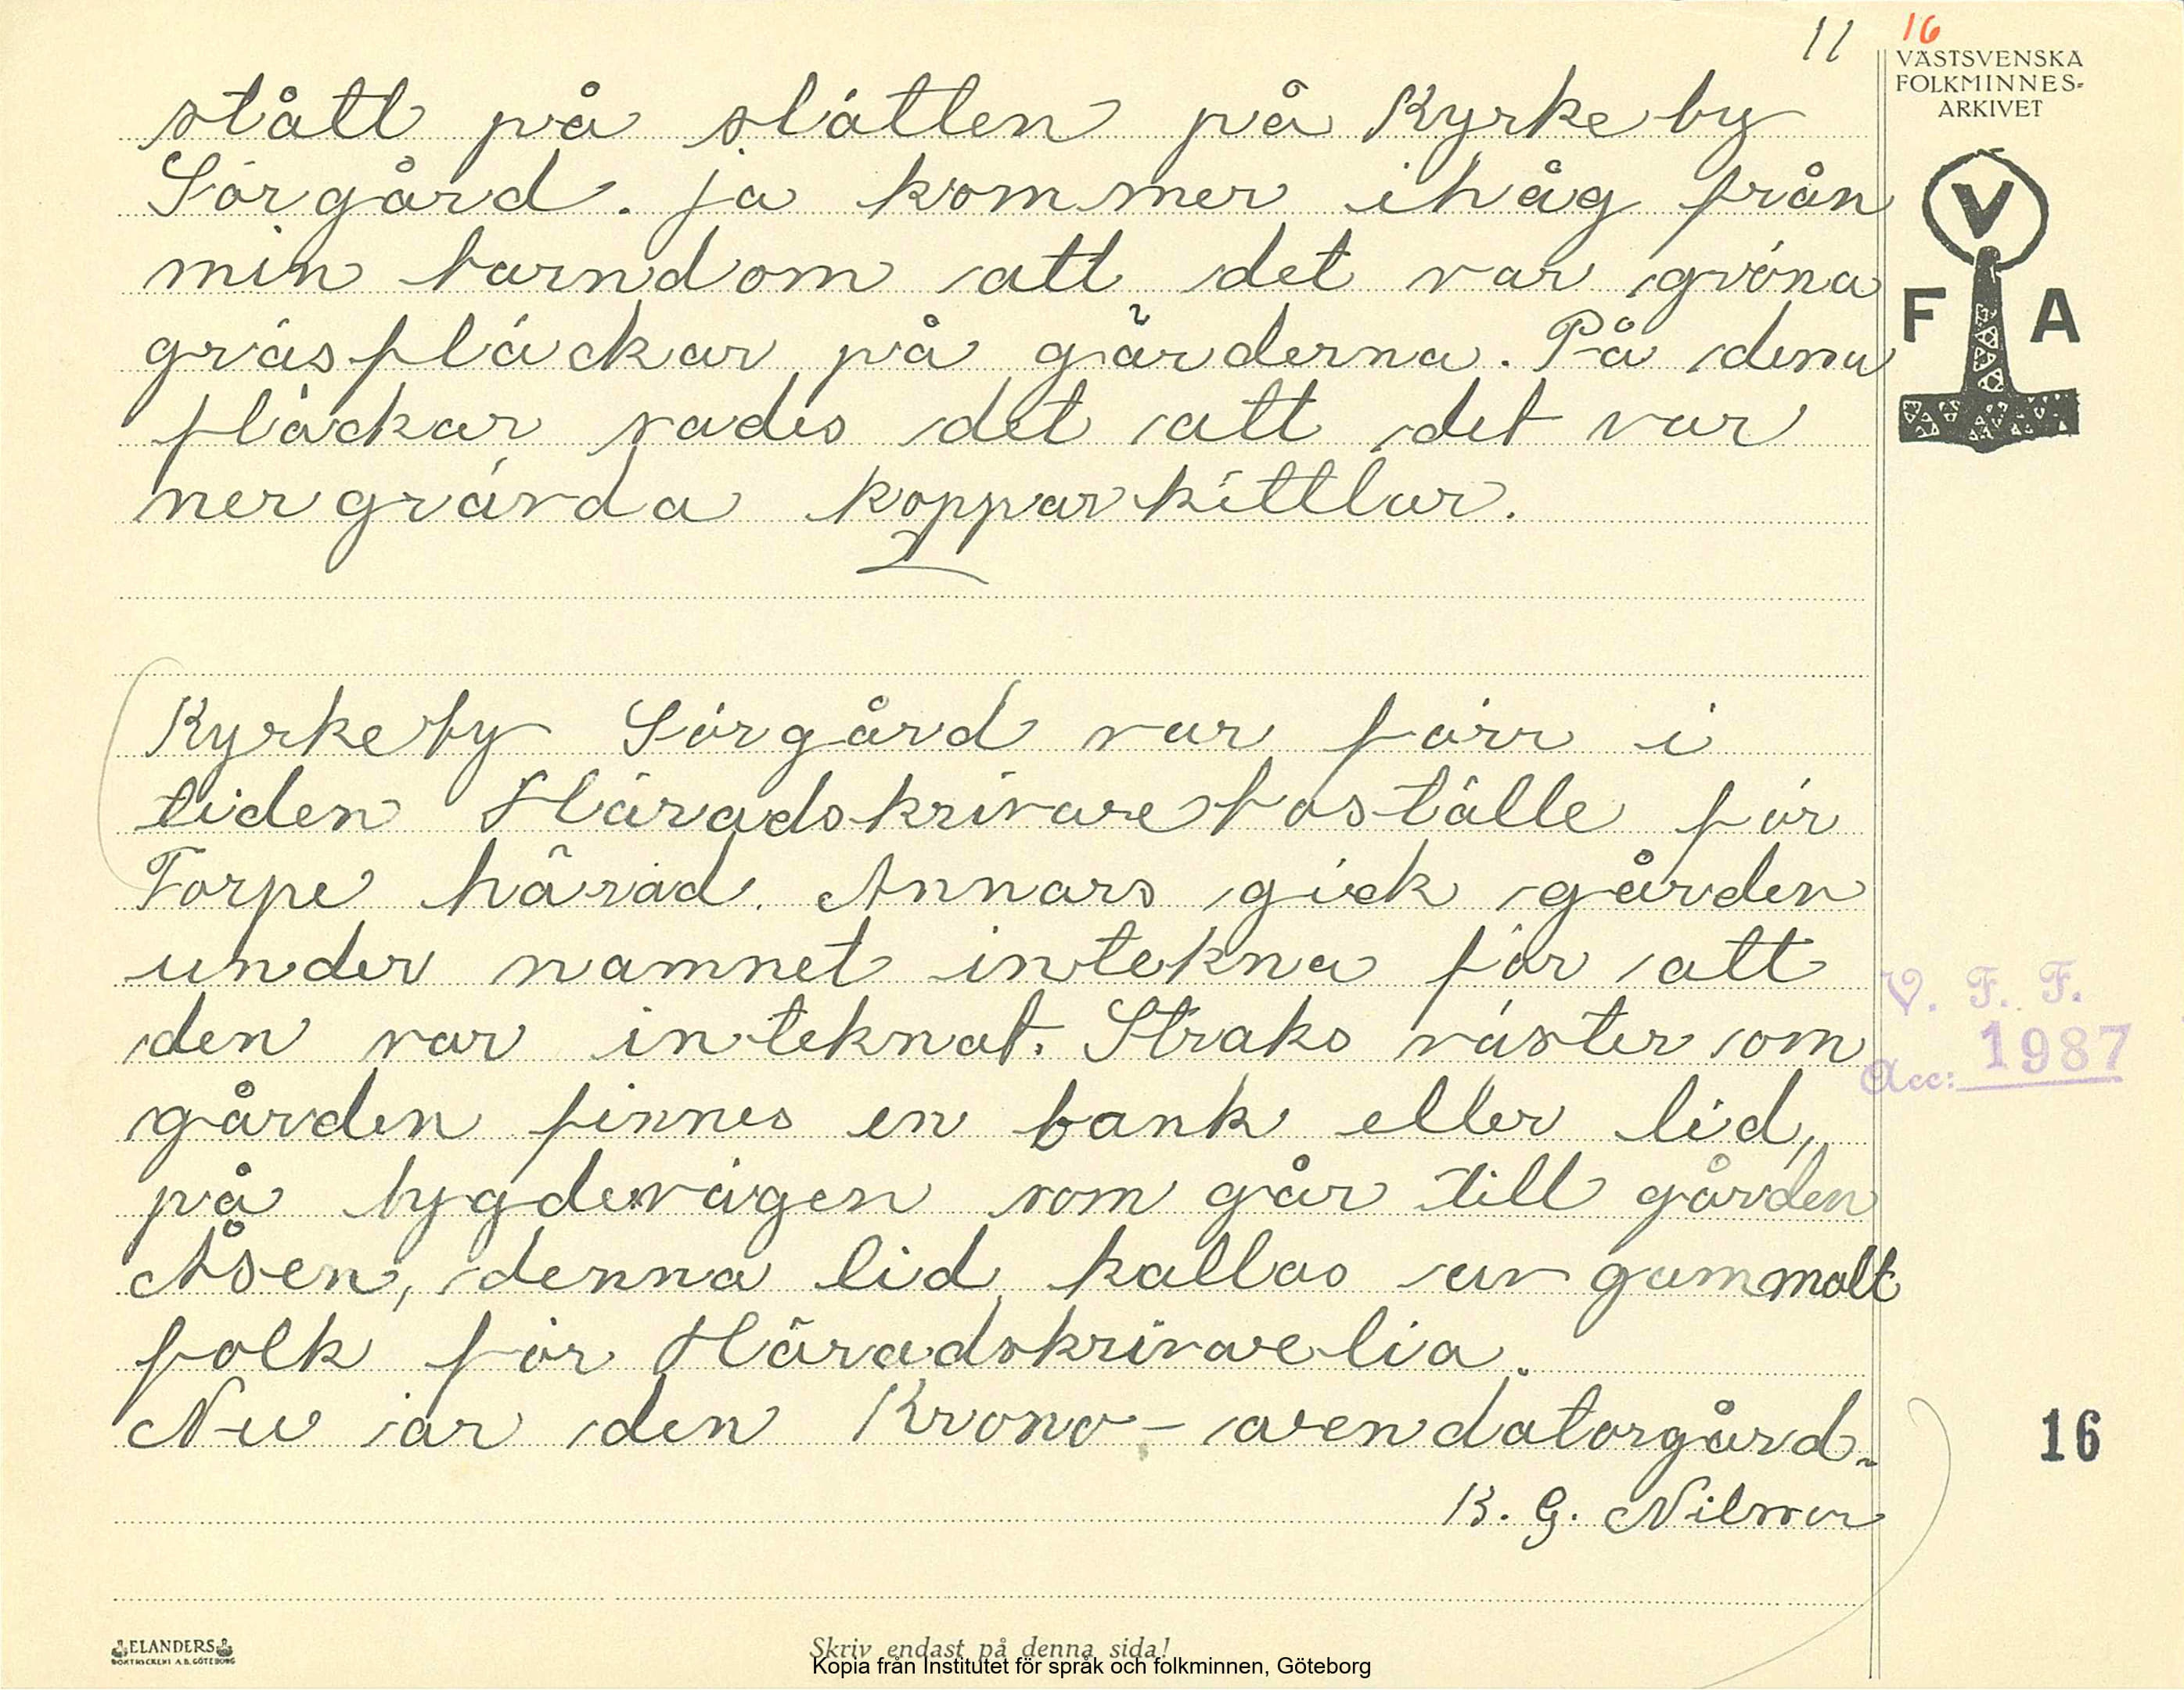 11 16
VÄSTSVENSKA
FOLKMINNES-
ARKIVET
V
F A
stått på slätten på Kyrkeby
Sörgård. ja kommer ihåg från
min barndom att det var gröna
gräsfläckar på gärderna. På dena
fläckar sades det att det var
nergrävda kopparkittlar.
Kyrkeby Sörgård var förr i
tiden Häradskrivareboställe för
Torpe härad. Annars gick gården
under namnet intekna för att
den var inteknat. Straks väster om
gården finnes en bank eller lid,
på bygdevägen som går till gården
Åsen, denna lid kallas av gammalt
folk för Häradskrivarelia.
Nu är den Krono-arendatorgård.
K. G. Nilsson
V. F. F.
Acc: 1987
16
ELANDERS
BOKTRYCKERI A.B. GÖTEBORG
Skriv endast på denna sida!
Kopia från Institutet för språk och folkminnen, Göteborg